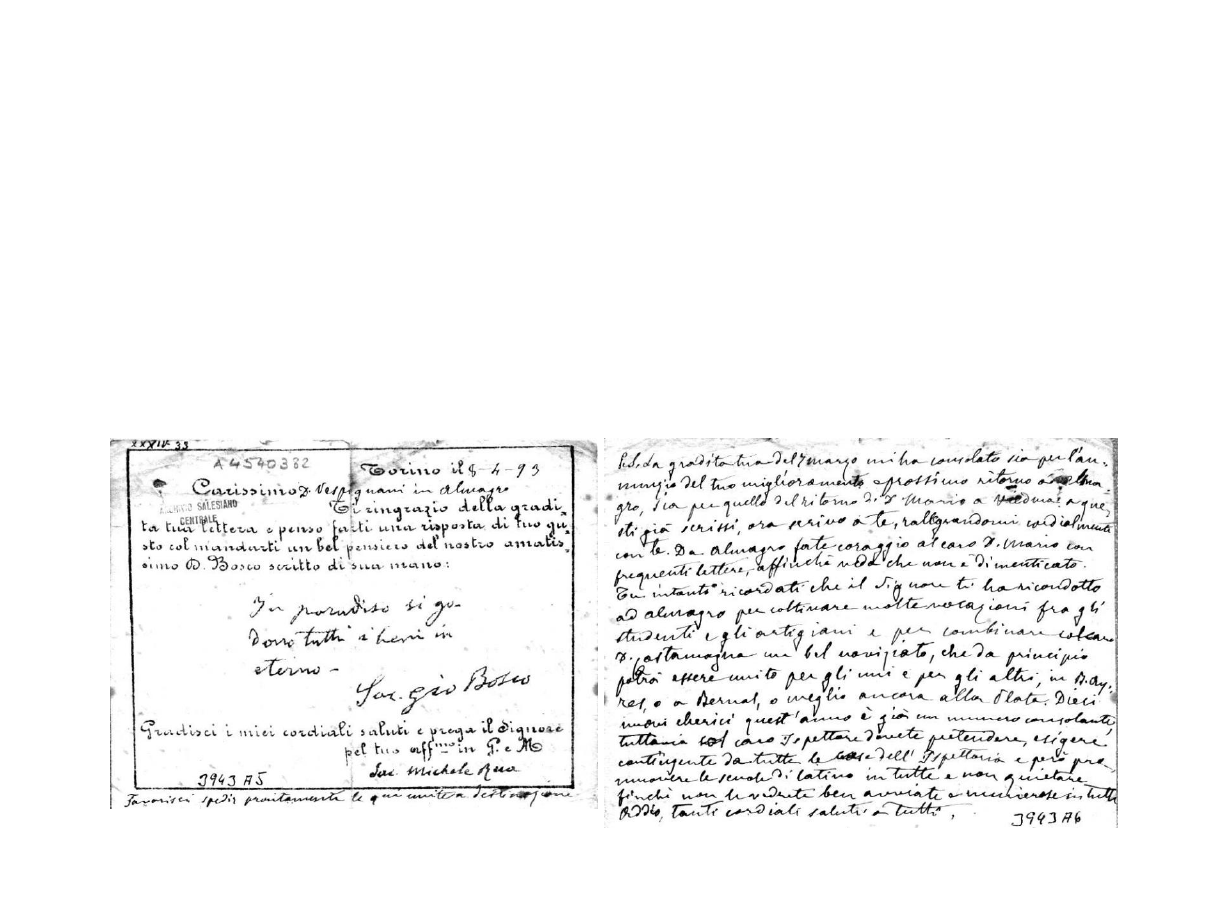 XXXIV 33
A 4540382
Torino il 8-4-93
Carissimo D. Vespignani in Almagro
ARCHIVIO SALESIANO
CENTRALE
Ti ringrazio della gradi=
ta tua lettera e penso farti una risposta di tuo gu=
sto col mandarti un bel pensiero del nostro amatis=
simo D. Bosco scritto di sua mano:
In paradiso si go-
dono tutti i beni in
eterno -
Sac. Gio Bosco
Gradisci i miei cordiali saluti e prega il Signore
pel tuo aff.mo in G. e M
Sac. Michele Rua
3943 A5
Favorisci spedir prontamente le qui unite a destinazione
La gradita tua del 7 marzo mi ha consolato sia per l'an-
nunzio del tuo miglioramento e prossimo ritorno a Alma-
gro, sia per quello del ritorno di D. Mario a Viedma: a que-
sti già scrissi, ora scrivo a te, rallegrandomi cordialmente
con te. Da Almagro fate coraggio al caro D. Mario con
frequenti lettere, affinchè veda che non è dimenticato.
Tu intanto ricordati che il Signore ti ha ricondotto
ad Almagro per coltivare molte vocazioni fra gli
studenti e gli artigiani e per combinare col caro
D. Costamagna un bel noviziato, che da principio
potrà essere unito per gli uni e per gli altri, in B. Ay-
res, o a Bernal, o meglio ancora alla Plata. Dieci
nuovi cherici quest'anno è già un numero consolante,
tuttavia col caro Ispettore dovete pretendere, esigere
contingente da tutte le case dell'Ispettoria e però pro-
muovere le scuole di latino in tutte e non quietare
finchè non le vedrete ben avviate e numerose in tutte
Addio, tanti cordiali saluti a tutti,
3943 A6